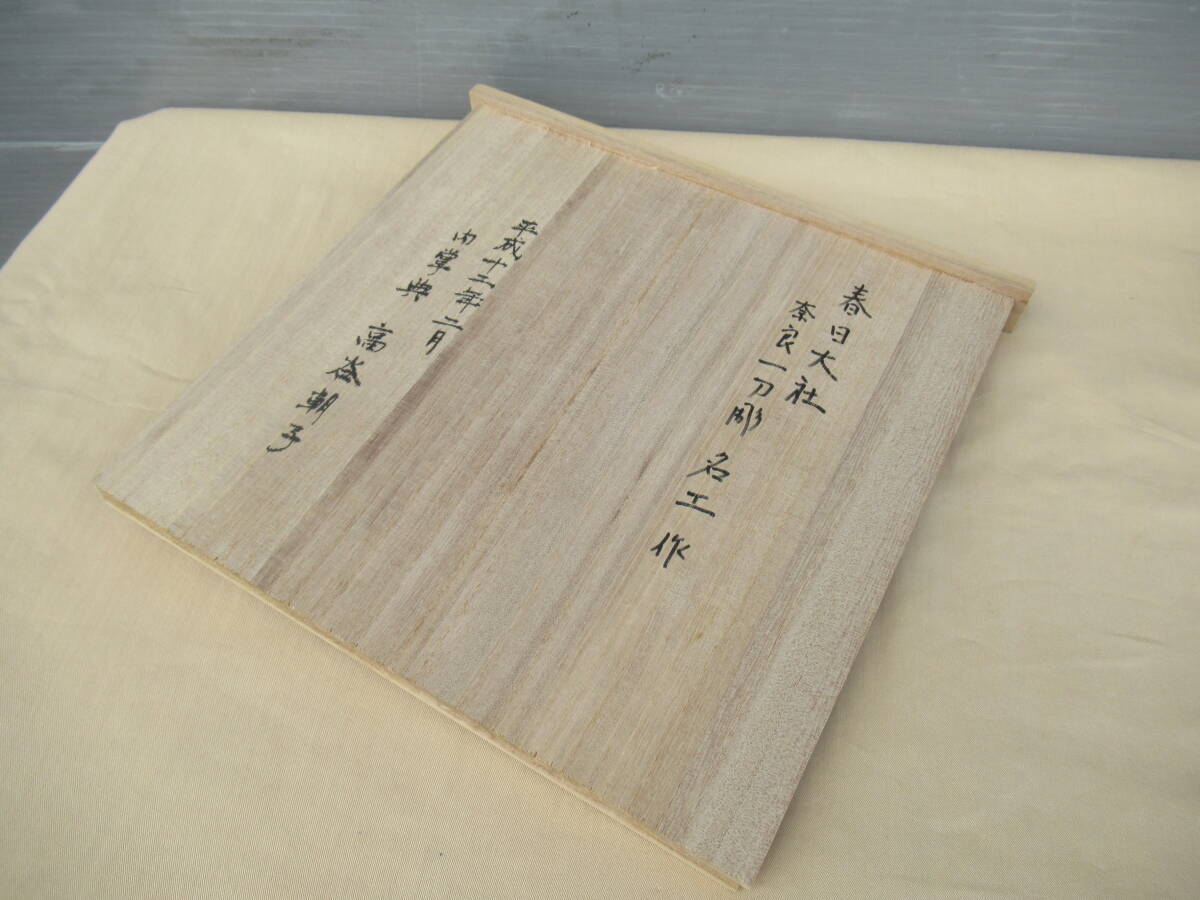 春日大社
奈良一刀彫 名工作
平成十三年二月
内掌典 高谷朝子